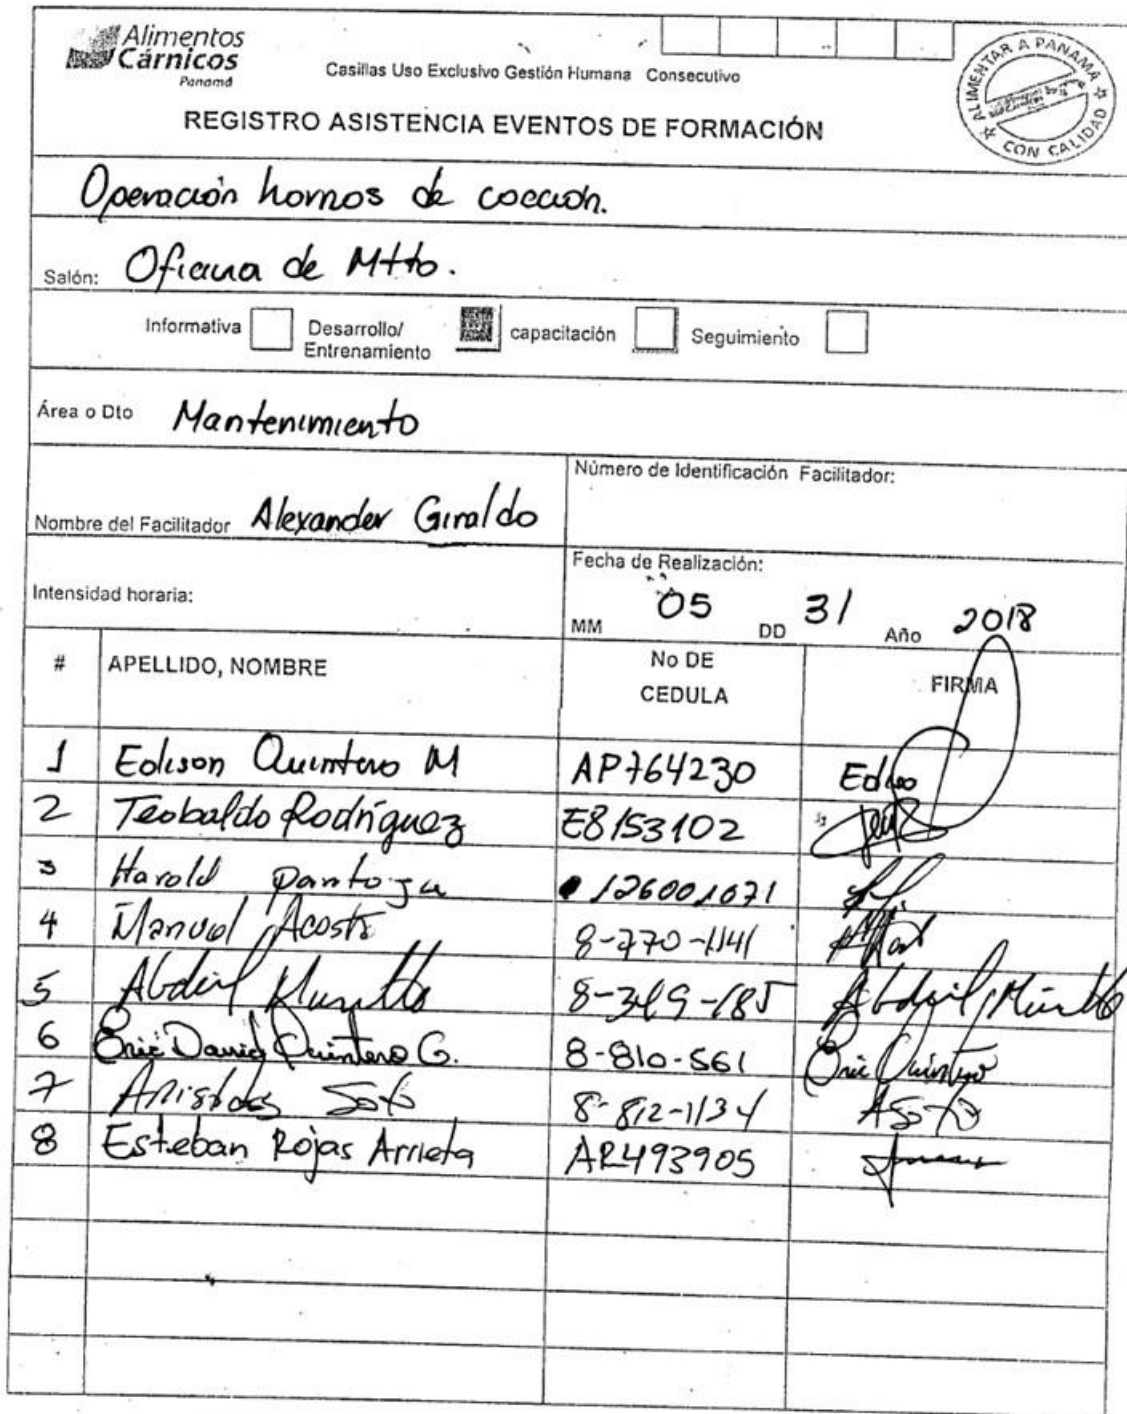 Alimentos
Cárnicos
Panamá
Casillas Uso Exclusivo Gestión Humana Consecutivo
ALIMENTAR A PANAMÁ
CON CALIDAD
REGISTRO ASISTENCIA EVENTOS DE FORMACIÓN
Operación hornos de cocción.
Salón: Oficina de Mtto.
Informativa Desarrollo/ Entrenamiento capacitación Seguimiento
Área o Dto Mantenimiento
Nombre del Facilitador Alexander Giraldo
Número de Identificación Facilitador:
Intensidad horaria:
Fecha de Realización:
MM 05 DD 31 Año 2018
# APELLIDO, NOMBRE No DE CEDULA FIRMA
1 Edison Quintero M AP764230 Ediso
2 Teobaldo Rodríguez E8153102
3 Harold Pantoja 126001071
4 Manuel Acosta 8-770-1141
5 Abdiel Murillo 8-349-185 Abdiel Murillo
6 Eric David Quintero G. 8-810-561 Eric Quintero
7 Soto 8-812-1134 ASoto
8 Esteban Rojas Arrieta AR493905